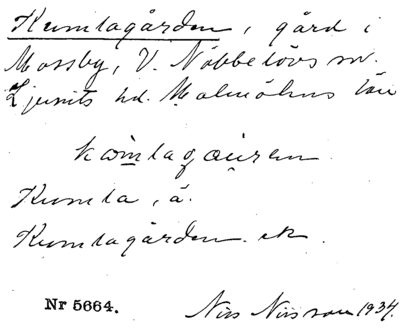 Kumlagården, gård i
Mossby, V. Nöbbelövs sn.
Ljunits hd. Malmöhus län
Kumla, å.
Kumlagården. ek.
Nr 5664.
Nils Nilsson 1934.